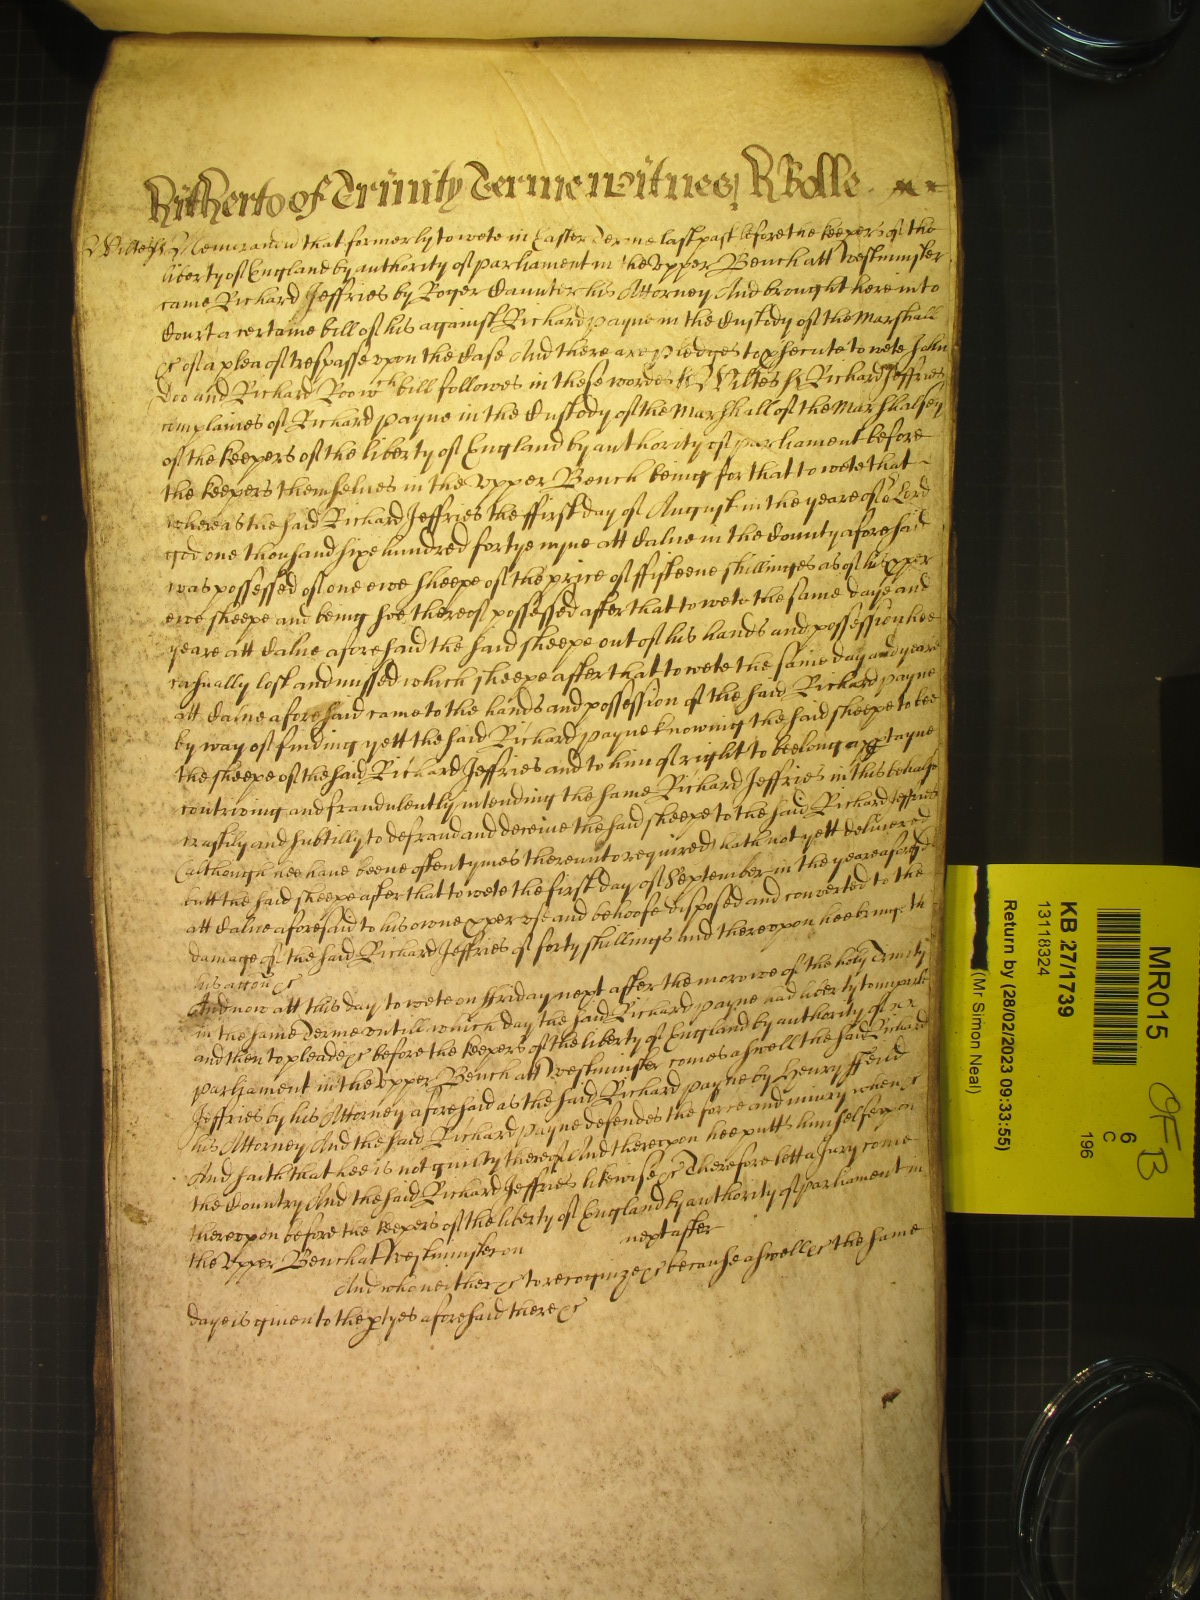 Hitherto of Trinity Terme witnes H Rolle
Wiltes ss Memorandu that formerly to wete in Easter Terme last past before the keepers of the
liberty of England by authority of parliament in the Vpper Bench att Westminster
came Richard Jeffries by Roger his Attorney And brought here into
Court a certaine bill of his against Richard Payne in the Custody of the Marshall
&c of a plea of trespasse vpon the Case And there are pledges to psecute to wete John
Doo and Richard Roo wch bill followes in these wordes ss Wiltes ss Richard Jeffries
complaines of Richard Payne in the Custody of the Marshall of the Marshalsey
of the keepers of the liberty of England by authority of parliament before
the keepers themselues in the Vpper Bench being for that to wete that
whereas the said Richard Jeffries the ffirst day of August in the yeare of or Lord
god one thousand sixe hundred fortye nyne att Calne in the County aforesaid
was possessed of one ewe sheepe of the price of ffifteene shillinges as of his pper
ewe sheepe and being soe thereof possessed after that to wete the same daye and
yeare att Calne aforesaid the said sheepe out of his hands and possession hee
casually lost and missed which sheepe after that to wete the same day and yeare
att Calne aforesaid came to the hands and possession of the said Richard Payne
by way of finding yett the said Richard Payne knowing the said sheepe to bee
the sheepe of the said Richard Jeffries and to him of right to beelong &
contriving and fraudulently intending the same Richard Jeffries in this behalfe
craftily and subtilly to defraud and deceiue the said sheepe to the said Richard Jeffries
(although hee haue beene oftentymes thereunto required) hath not yett delivered
butt the said sheepe after that to wete the first day of September in the yeare aforesd
att Calne aforesaid to his owne pper vse and behoofe disposed and converted to the
damage of the said Richard Jeffries of forty shillings and therevpon hee bringeth
his accon &c
And now att this day to wete on ffriday next after the morowe of the holy Trinity
in the same Terme vntill which day the said Richard Payne had liberty to imparle
and then to pleade &c before the keepers of the liberty of England by authority of
parliament in the vpper Bench att Westminster comes aswell the said Richard
Jeffries by his Attorney aforesaid as the said Richard Payne by Henry ffeild
his Attorney And the said Richard Payne defendes the force and iniury when &c
And saith that hee is not guilty thereof And therevpon hee putts himselfe vpon
the Country And the said Richard Jeffries likewise &c Therefore lett a Jury come
therevpon before the keepers of the liberty of England by authority of parliament in
the Vpper Bench at Westminster on next after
And who neither &c to recognize &c because aswell &c the same
daye is giuen to the ptyes aforesaid there &c
MR015
6
C
196
KB 27/1739
13118324
Return by (28/02/2023 09:33:55)
(Mr Simon Neal)
OFB